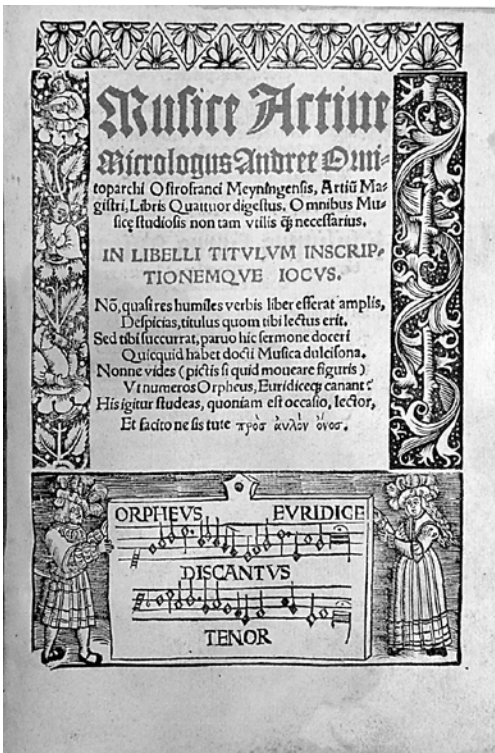 Musice Actiue
Micrologus Andree Orni⸗
toparchi Ostrofranci Meyningensis, Artiū Ma⸗
gistri, Libris Quattuor digestus. Omnibus Mu⸗
sicę studiosis non tam vtilis q̄ȝ necessarius.
IN LIBELLI TITVLVM INSCRIP⸗
TIONEMQVE IOCVS.
Nō, quasi res humiles verbis liber efferat amplis,
Despicias, titulus quom tibi lectus erit.
Sed tibi succurrat, paruo hic sermone doceri
Quicquid habet docti Musica dulcisona.
Nonne vides (pictis si quid moueare figuris)
Vt numeros Orpheus, Euridiceqȝ canant?
His igitur studeas, quoniam est occasio, lector,
Et facito ne sis tute πρὸς ἀυλὸν ὄνοσ.
ORPHEVS EVRIDICE
DISCANTVS
TENOR